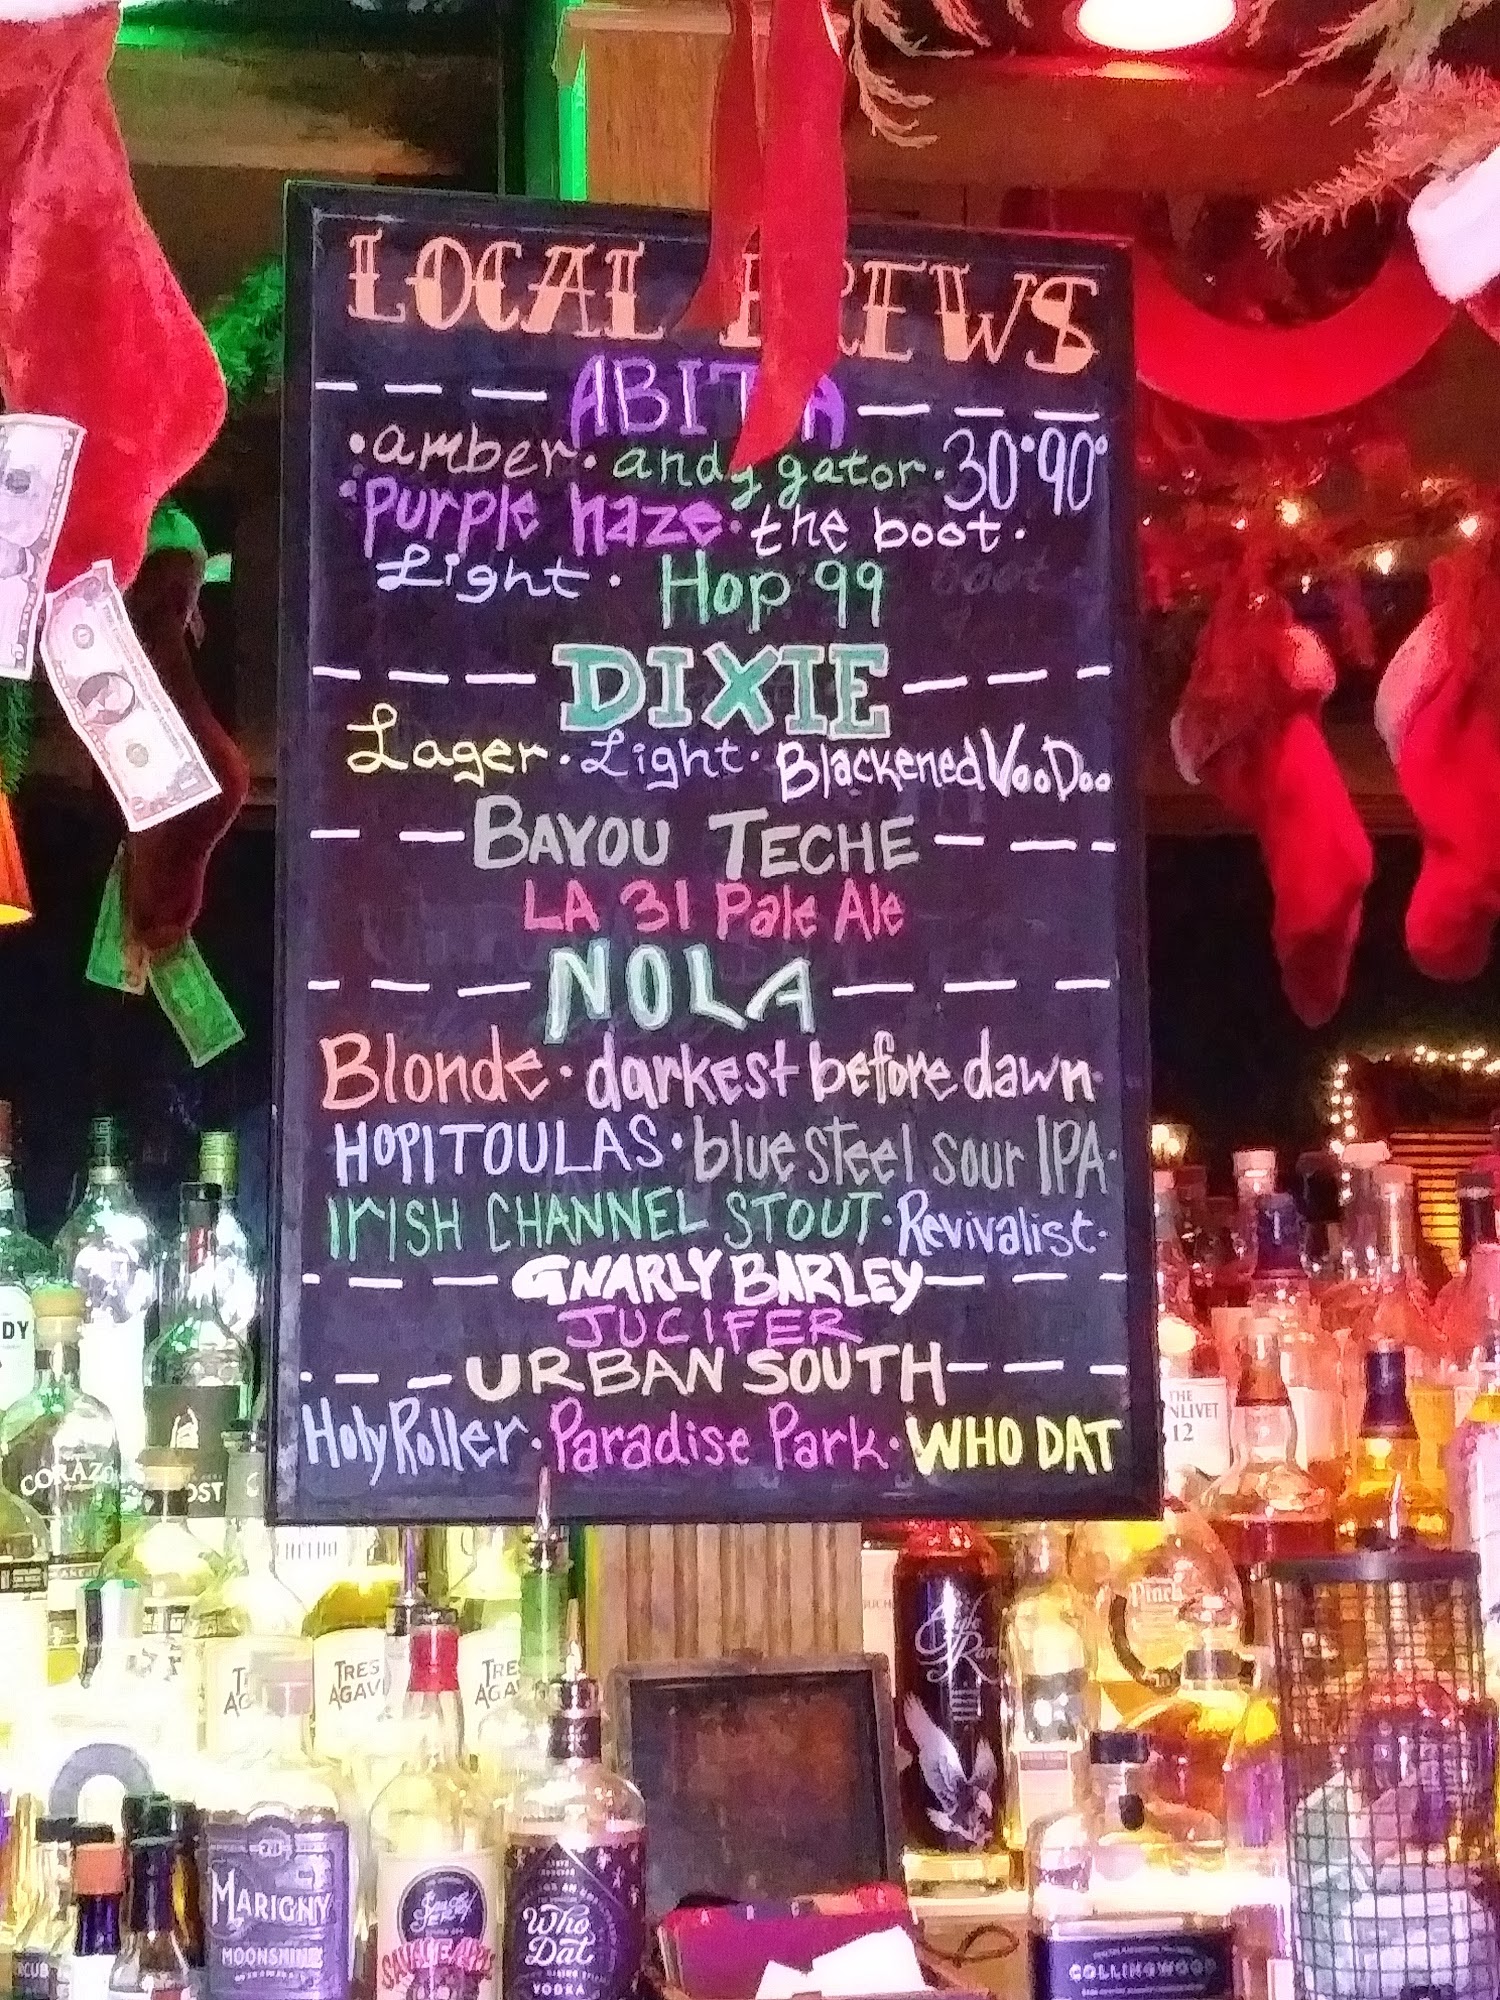 LOCAL BREWS
ABITA
• amber • andygator • 30°90°
• Purple haze • the boot •
Light • Hop 99
DIXIE
Lager • Light • Blackened VooDoo
BAYOU TECHE
LA 31 Pale Ale
NOLA
Blonde • darkest before dawn •
HOPITOULAS • blue steel sour IPA •
IrISH CHANNEL STOUT • Revivalist •
GNARLY BARLEY
JUCIFER
URBAN SOUTH
Holy Roller • Paradise Park • WHO DAT
THE
12
CORAZ
TRES
AGAV
TRES
AGA
Pinch
MARIGNY
MOONSHINE
Who
Dat
VODKA
COLLINGWOOD